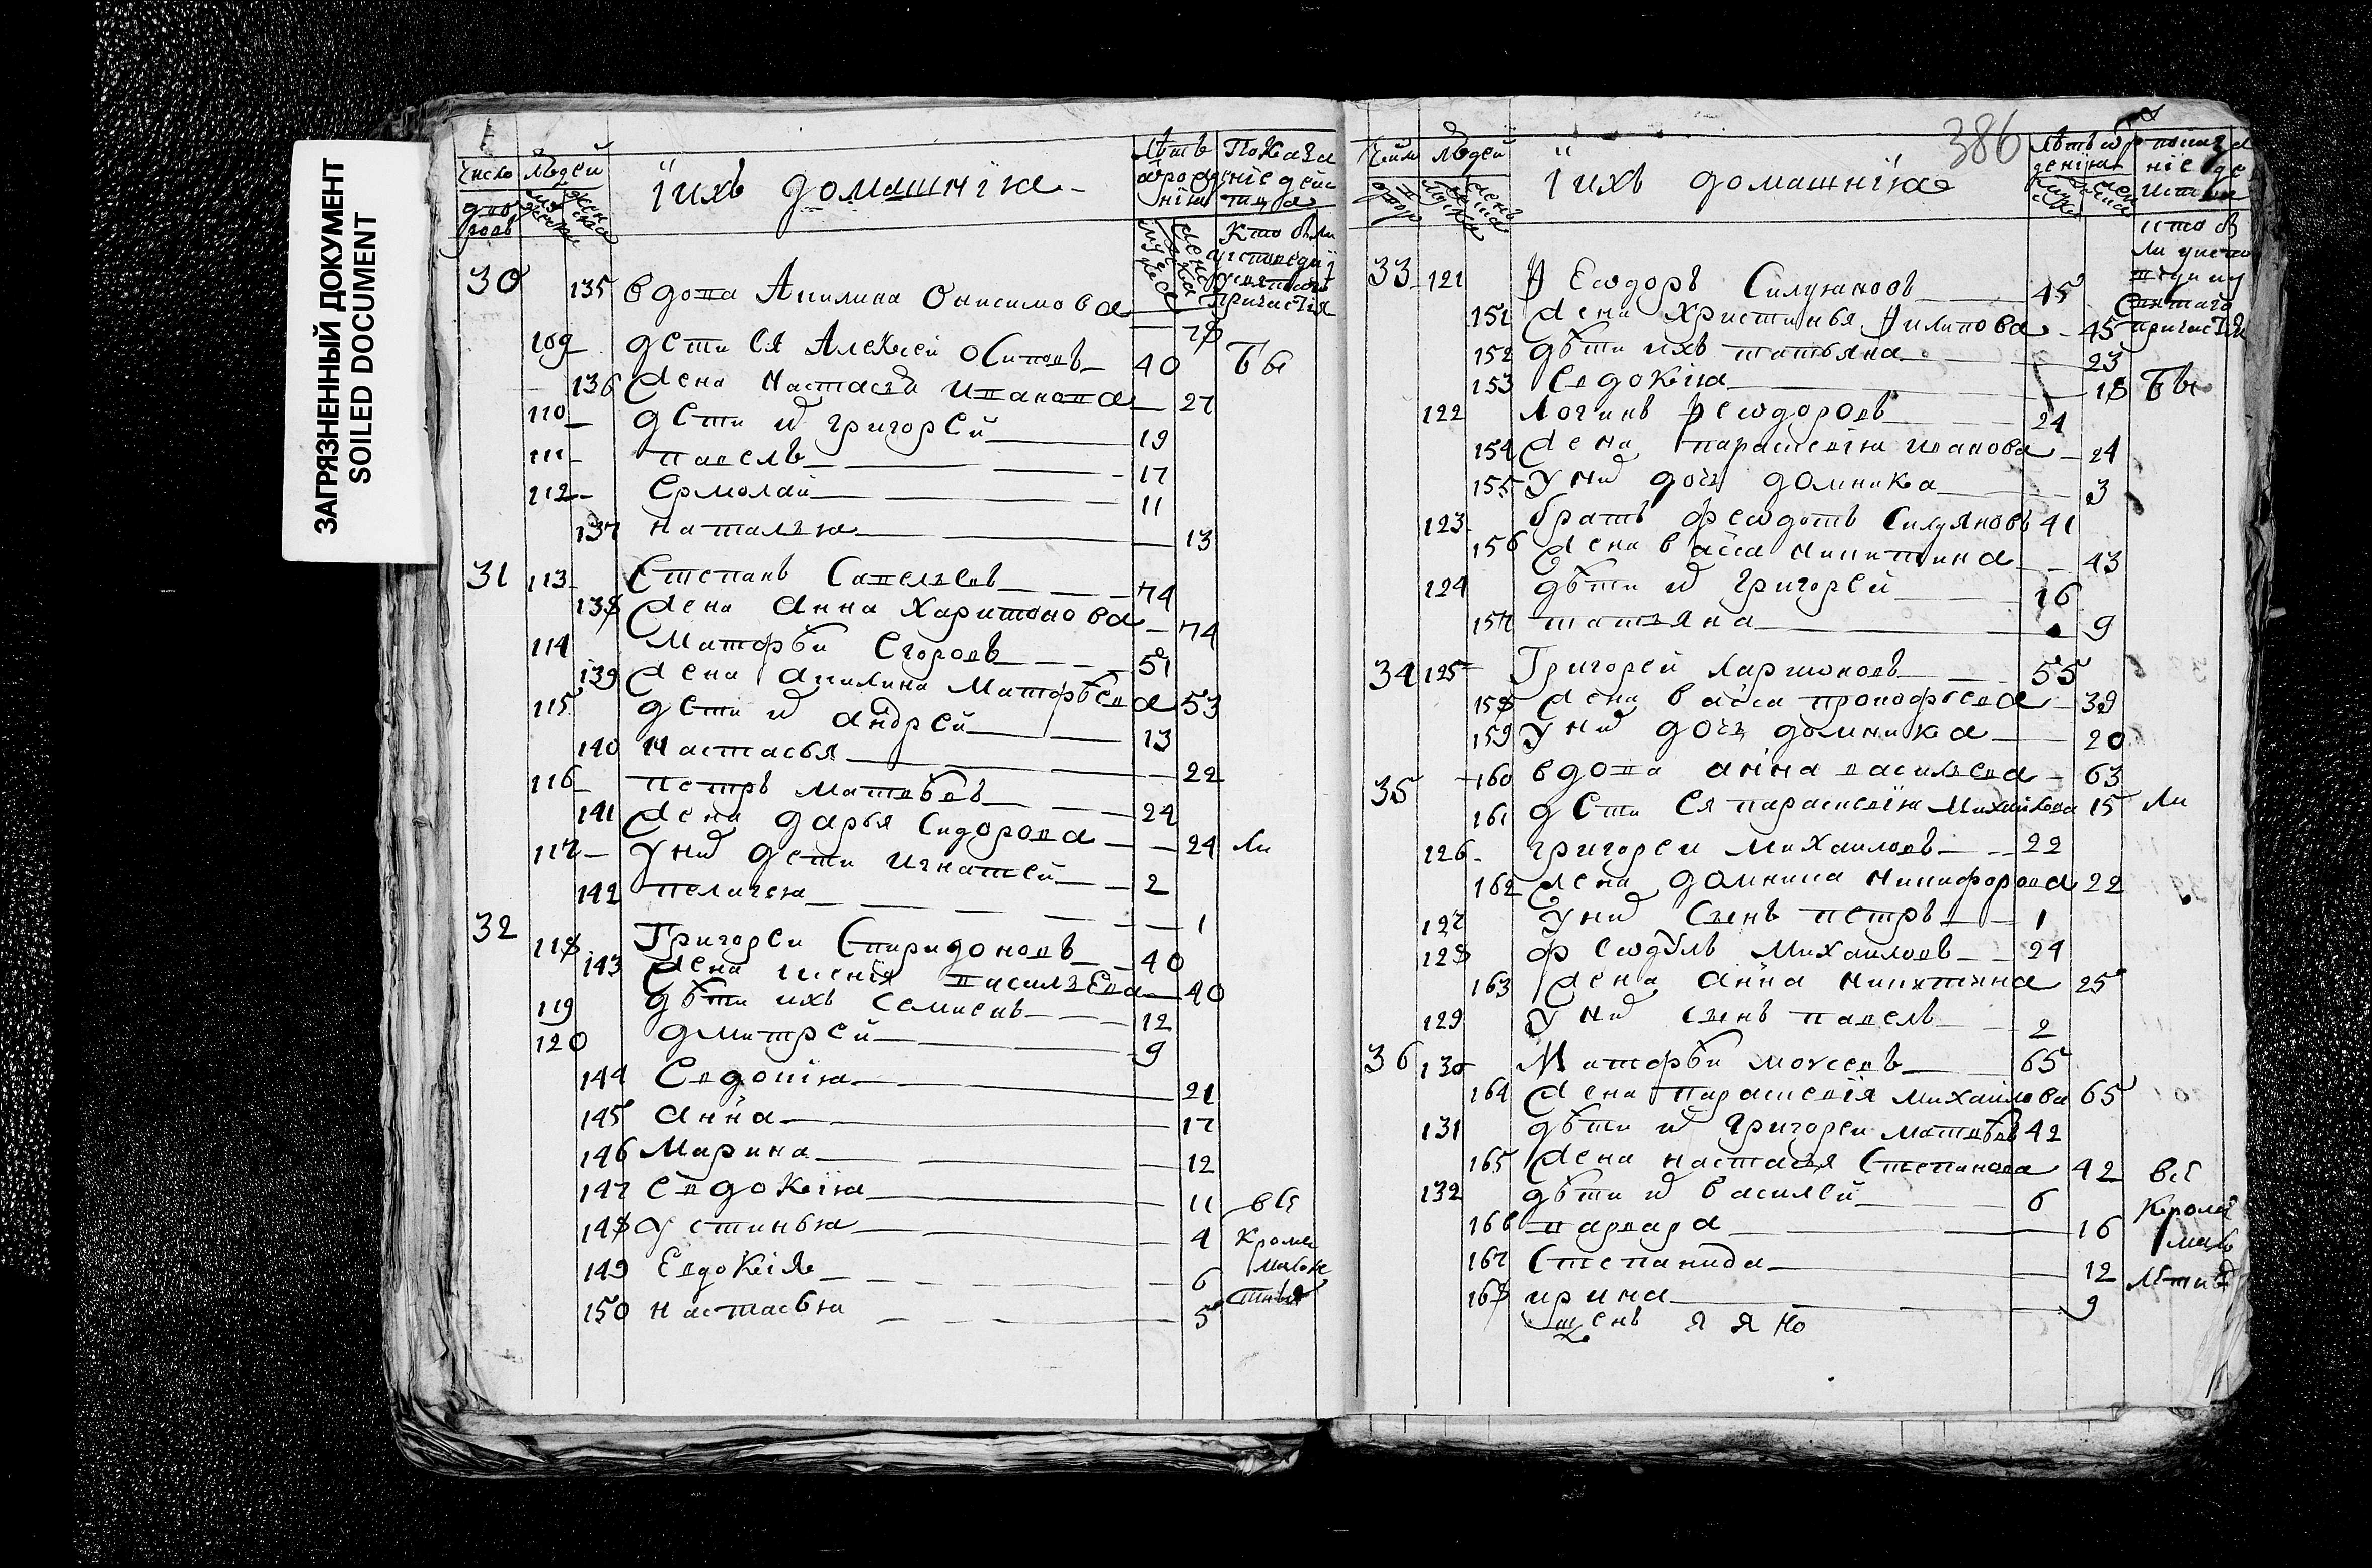 ЗАГРЯЗНЕННЫЙ ДОКУМЕНТ
SOILED DOCUMENT
Число Людей
їихъ домашнїя
Лѣтъ
Показа
нїе дей
Кто были
причастїя
30 135 вдова Акилина Онисимова 78
109 дети ея Алексей Осиповъ 40 Бы
136 жена Настасья Иванова 27
110 дети иⷯ Григорей 19
111 павелъ 17
112 Ермолай 11
137 наталья 13
31 113 Степанъ Савельевъ 74
138 жена Анна Харитонова 74
114 Матфѣи Егоровъ 51
139 жена Акилина Матфѣева 53
115 дети иⷯ андрей 13
140 настасья 22
116 петръ матвѣевъ 24
141 жена дарья Сидорова 24 ли
117 У ниⷯ дети игнатей 2
142 пелагея 1
32 118 Григореи Спиридоновъ 40
143 жена василЬева 40
119 дѣти ихъ Семионъ 12
120 дмитрей 9
144 Евдокїя 21
145 анна 17
146 Марина 12
147 Евдокїя 11 всѣ
148 Устинья 4 кроме
149 Евдокїя 6
150 настасья 5
386
їихъ домашнїя
Людей
причастїя
33 121 Ѳеѡдоръ Силуяновъ 45
151 жена христинья Филипова 45
152 дѣти ихъ татьяна 23
153 Евдокїя 18 Бы
122 Логинъ Феѡдоровъ 24
154 жена параскевїя иванова 24
155 У ниⷯ дочь домника 3
123 братъ феѡдотъ Силуяновъ 41
156 жена васса никитина 43
124 дѣти иⷯ Григорей 16
157 татьяна 9
34 125 Григорей Ларионовъ 55
158 жена васса прокофьева 39
159 У ниⷯ дочь домника 20
35 160 вдова анна васильева 63
161 дети ея параскевїя Михайлова 15 ли
126 григореи михаиловъ 22
162 жена домника никифорова 22
127 У ниⷯ сынъ петръ 1
128 феѡдулъ михаиловъ 24
163 жена анна никитина 25
129 У ниⷯ сынъ павелъ 2
36 130 Матфѣи моѵсеевъ 65
164 жена параскевїя михаилова 65
131 дѣти иⷯ Григореи матвѣевъ 42
165 жена настасья Степанова 42 всѣ
132 дѣти иⷯ василей 6 кроме
166 варвара 16
167 Степанида 12
168 ирина 9